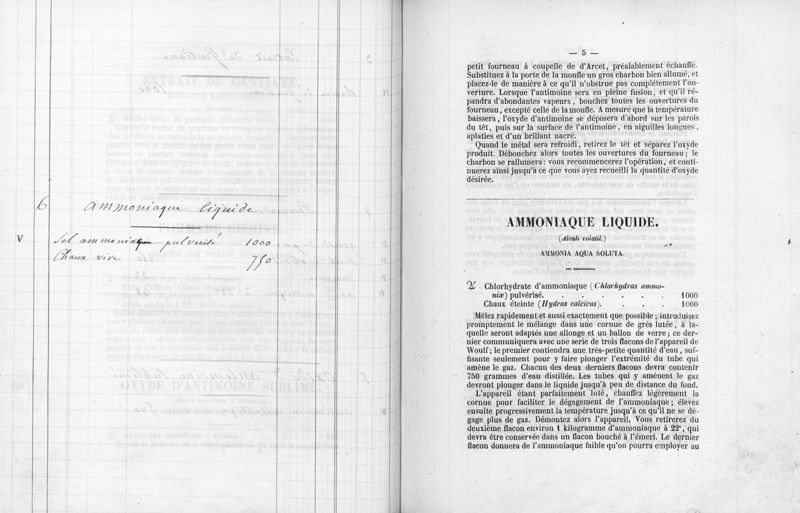 6 Ammoniaque liquide
v Sel ammoniaque pulverisé 1000
Chaux vive 750
— 5 —
petit fourneau à coupelle de d'Arcet, préalablement échauffé.
Substituez à la porte de la moufle un gros charbon bien allumé, et
placez-le de manière à ce qu'il n'obstrue pas complétement l'ou-
verture. Lorsque l'antimoine sera en pleine fusion, et qu'il ré-
pandra d'abondantes vapeurs, bouchez toutes les ouvertures du
fourneau, excepté celle de la moufle. A mesure que la température
baissera, l'oxyde d'antimoine se déposera d'abord sur les parois
du têt, puis sur la surface de l'antimoine, en aiguilles longues,
aplaties et d'un brillant nacré.
Quand le métal sera refroidi, retirez le têt et séparez l'oxyde
produit. Débouchez alors toutes les ouvertures du fourneau; le
charbon se rallumera: vous recommencerez l'opération, et conti-
nuerez ainsi jusqu'à ce que vous ayez recueilli la quantité d'oxyde
désirée.
AMMONIAQUE LIQUIDE.
(Alcali volatil.)
AMMONIA AQUA SOLUTA.
♃ Chlorhydrate d'ammoniaque (Chlorhydras ammo-
niæ) pulvérisé. . . . . . . 1000
Chaux éteinte (Hydras calcicus). . . . 1000
Mêlez rapidement et aussi exactement que possible; introduisez
promptement le mélange dans une cornue de grès lutée, à la-
quelle seront adaptés une allonge et un ballon de verre; ce der-
nier communiquera avec une serie de trois flacons de l'appareil de
Woulf; le premier contiendra une très-petite quantité d'eau, suf-
fisante seulement pour y faire plonger l'extrémité du tube qui
amène le gaz. Chacun des deux derniers flacons devra contenir
750 grammes d'eau distillée. Les tubes qui y amènent le gaz
devront plonger dans le liquide jusqu'à peu de distance du fond.
L'appareil étant parfaitement luté, chauffez légèrement la
cornue pour faciliter le dégagement de l'ammoniaque; élevez
ensuite progressivement la température jusqu'à ce qu'il ne se dé-
gage plus de gaz. Démontez alors l'appareil. Vous retirerez du
deuxième flacon environ 1 kilogramme d'ammoniaque à 22°, qui
devra être conservée dans un flacon bouché à l'émeri. Le dernier
flacon donnera de l'ammoniaque faible qu'on pourra employer au